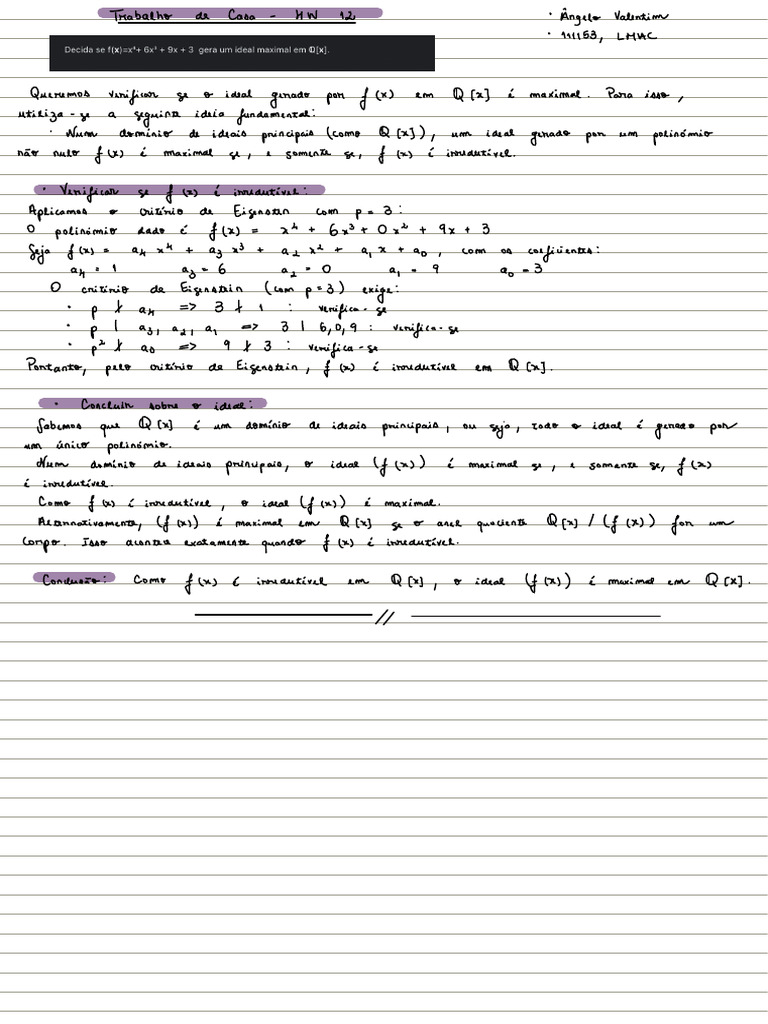 Trabalho de Casa - HW 12
· Ângelo Valentim
· 111153, LMAC
Decida se f(x)=x⁴+ 6x³ + 9x + 3 gera um ideal maximal em ℚ[x].
Queremos verificar se o ideal gerado por f(x) em ℚ[x] é maximal. Para isso,
utiliza-se a seguinte ideia fundamental:
· Num domínio de ideais principais (como ℚ[x]), um ideal gerado por um polinómio
não nulo f(x) é maximal se, e somente se, f(x) é irredutível.
· Verificar se f(x) é irredutível:
Aplicamos o critério de Eisenstein com p = 3:
O polinómio dado é f(x) = x⁴ + 6x³ + 0x² + 9x + 3
Seja f(x) = a₄x⁴ + a₃x³ + a₂x² + a₁x + a₀, com os coeficientes:
a₄ = 1 a₃ = 6 a₂ = 0 a₁ = 9 a₀ = 3
O critério de Eisenstein (com p=3) exige:
· p ∤ a₄ => 3 ∤ 1 : verifica-se
· p | a₃, a₂, a₁ => 3 | 6,0,9 : verifica-se
· p² ∤ a₀ => 9 ∤ 3 : verifica-se
Portanto, pelo critério de Eisenstein, f(x) é irredutível em ℚ[x].
· Concluir sobre o ideal:
Sabemos que ℚ[x] é um domínio de ideais principais, ou seja, todo o ideal é gerado por
um único polinómio.
Num domínio de ideais principais, o ideal (f(x)) é maximal se, e somente se, f(x)
é irredutível.
Como f(x) é irredutível, o ideal (f(x)) é maximal.
Alternativamente, (f(x)) é maximal em ℚ[x] se o anel quociente ℚ[x] / (f(x)) for um
corpo. Isso acontece exatamente quando f(x) é irredutível.
Conclusão: Como f(x) é irredutível em ℚ[x], o ideal (f(x)) é maximal em ℚ[x].